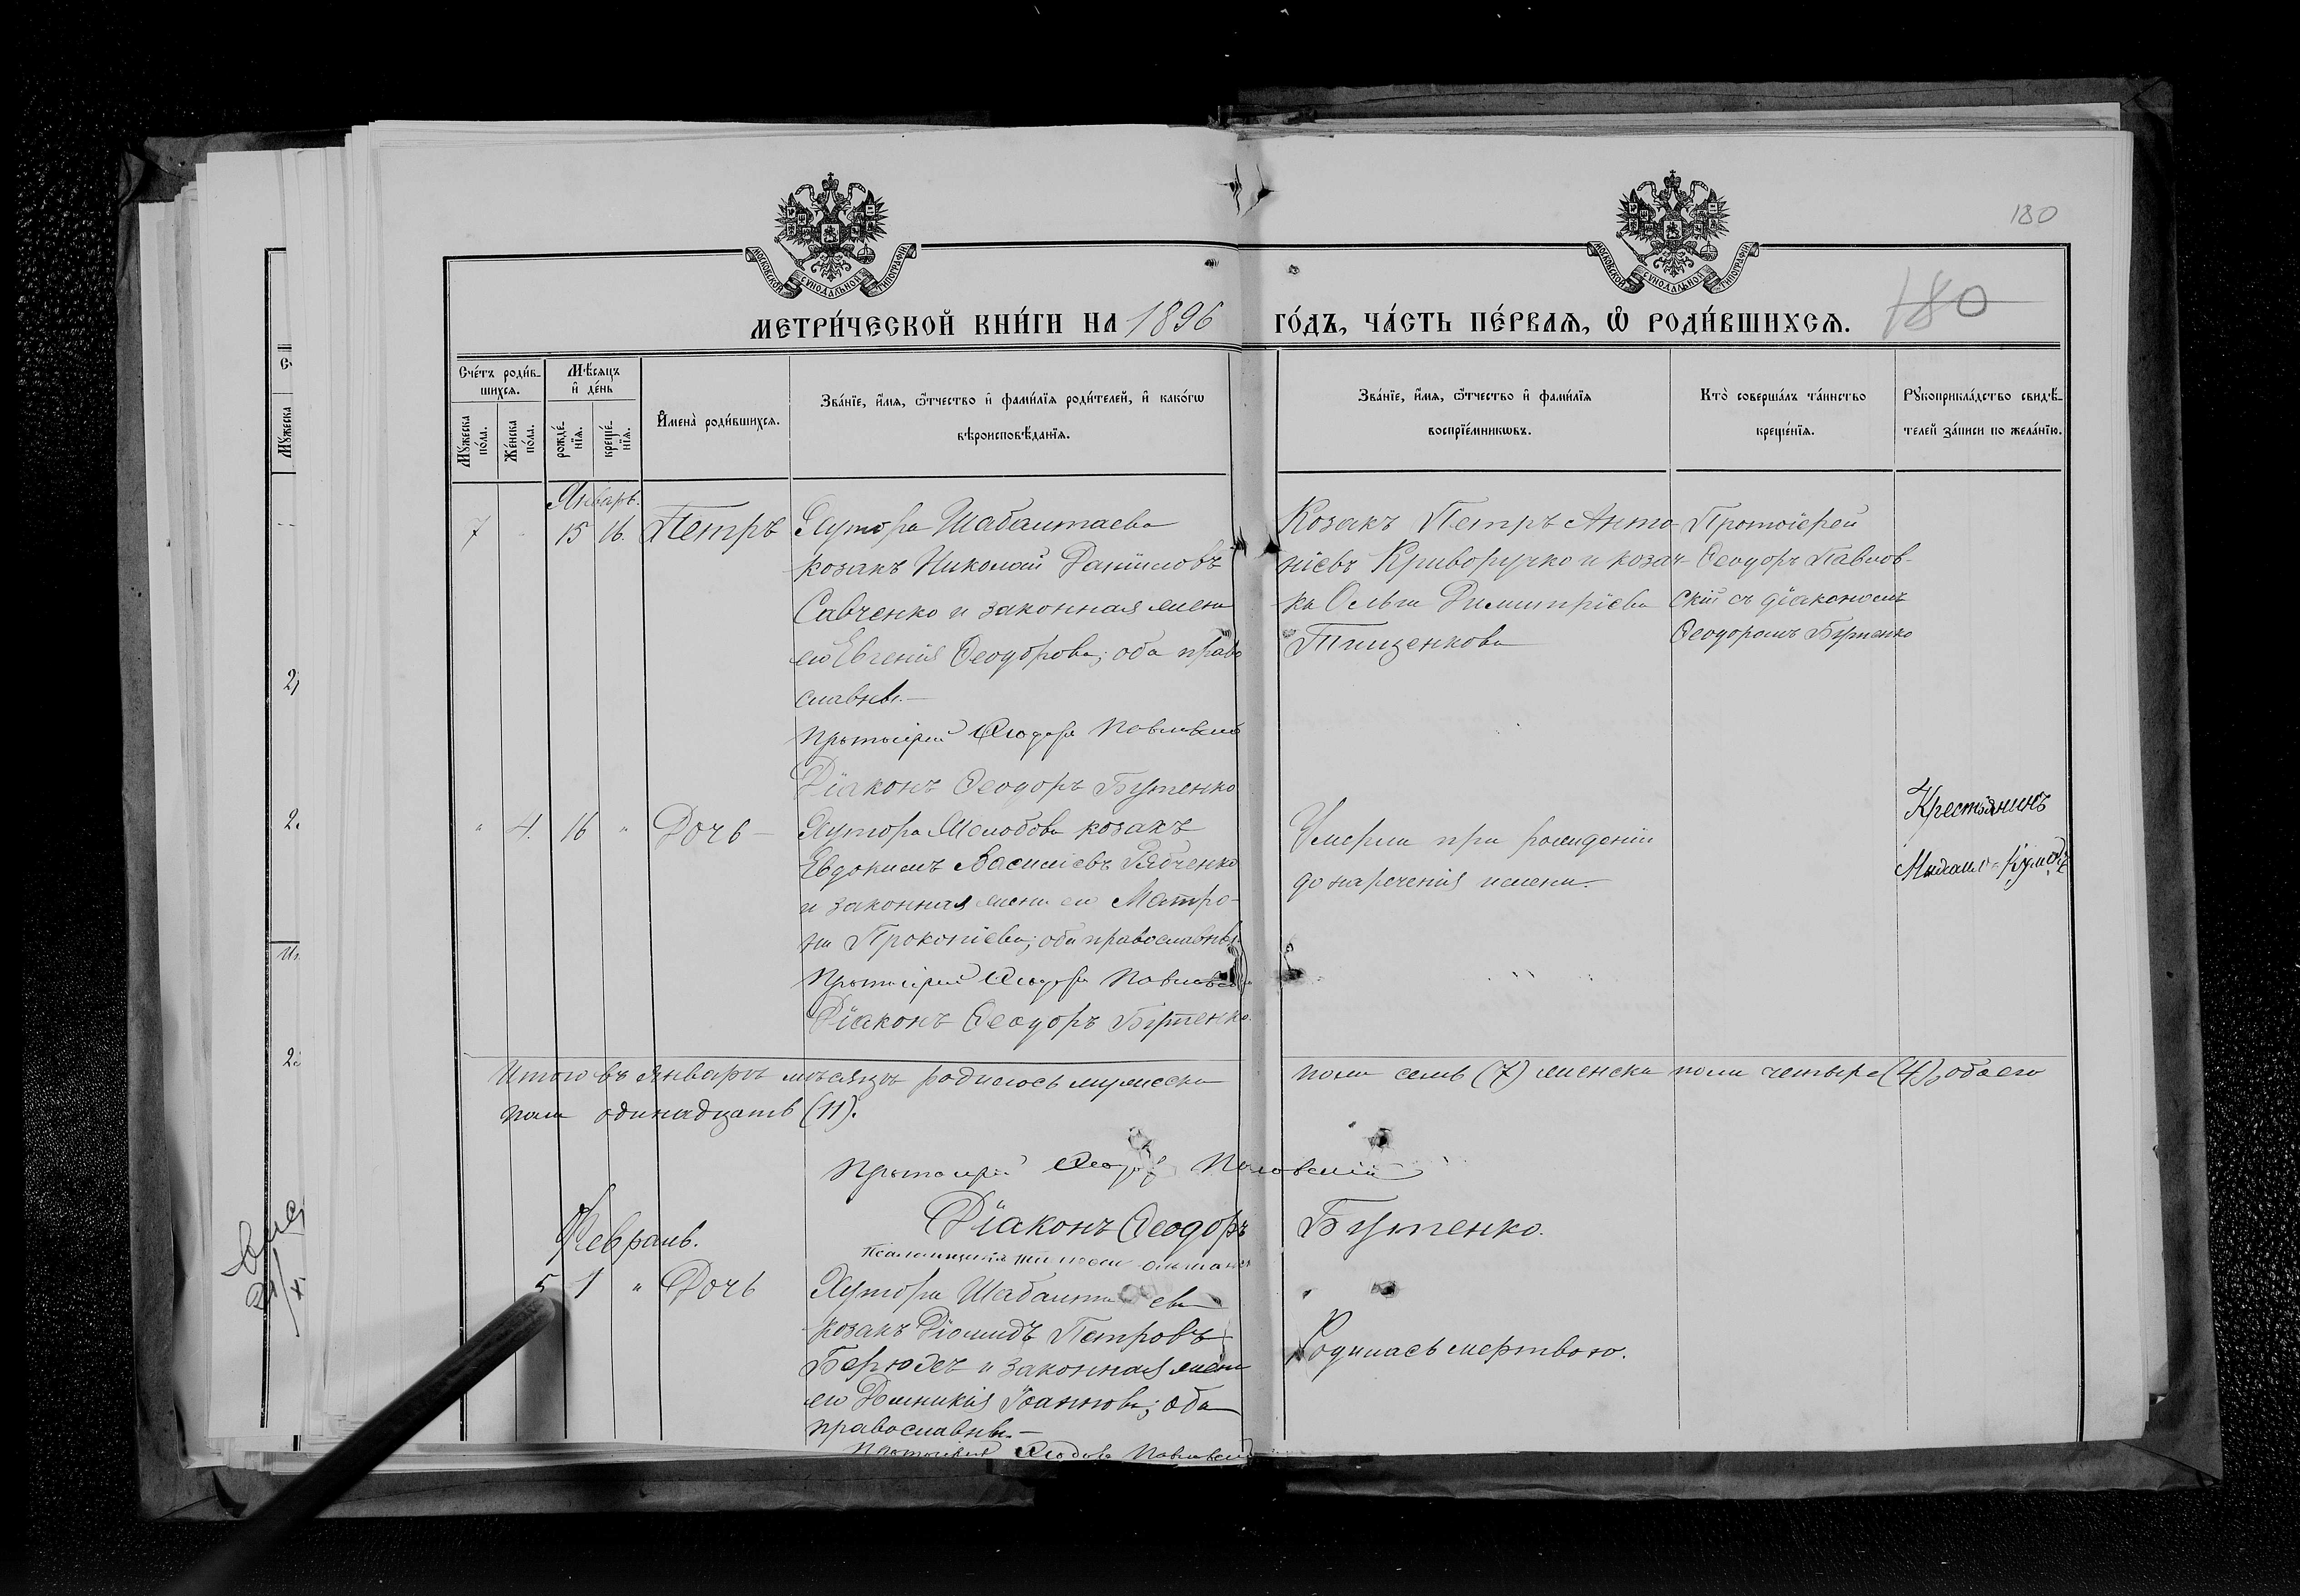 180
МОСКОВСКОЙ СѴНОДАЛЬНОЙ ТИПОГРАФІИ
МОСКОВСКОЙ СѴНОДАЛЬНОЙ ТИПОГРАФІИ
МЕТРИ́ЧЕСКОЙ КНИ́ГИ НА 1896 ГО́ДЪ, ЧА́СТЬ ПЕ́РВАѦ, Ѽ РОДИ́ВШИХСѦ. 180
Сче́тъ роди́в-
шихсѧ.
Мꙋ́жеска по́ла.
Же́нска по́ла.
Мѣ́сѧцъ
и҆ де́нь
рожде́нїѧ.
креще́нїѧ.
И҆мена̀ роди́вшихсѧ.
Зва́нїе, и҆́мѧ, ѻ҆́тчество и҆ фами́лїѧ роди́телей, и҆ како́гѡ
вѣроисповѣ́данїѧ.
Зва́нїе, и҆́мѧ, ѻ҆́тчество и҆ фами́лїѧ
воспрїе́мникѡвъ.
Кто̀ соверша́лъ та́инство
креще́нїѧ.
Рꙋкоприкла́дство свидѣ́-
телей за́писи по жела́нїю.
Январь.
7 " 15 16. Петръ
Хутора Шабалтаева
козакъ Николай Даніиловъ
Савченко и законная жена
его Евгенія Ѳеодорова; оба право
славны.—
Протоіерей Ѳеодоръ Павловскій
Діаконъ Ѳеодоръ Бутенко
Козакъ Петръ Анто-
ніевъ Криворучко и козач-
ка Ольга Димитріева
Тищенкова
Протоіерей
Ѳеодоръ Павлов-
скій съ діакономъ
Ѳеодоромъ Бутенко
" 4. 16 " Дочь —
Хутора козакъ
Евдокимъ Василіевъ Рябченко
и законная жена его Матро-
на Прокопіева; оба православны.
Протоіерей Ѳеодоръ Павловскій
Діаконъ Ѳеодоръ Бутенко.
Умерла при рожденіи
до нареченія имени.
Крестьянинъ
Итого въ Январѣ мѣсяцѣ родилось мужеска пола семь (7) женска пола четыре (4), обоего
пола одинадцать (11).
Протоіерей Ѳеодоръ Павловскій
Діаконъ Ѳеодоръ Бутенко.
Февраль.
5 1 " Дочь
Хутора Шабалтаева
козакъ Діомидъ Петровъ
и законная жена
его Домникія Іоаннова; оба
православны.—
Протоіерей Ѳеодоръ Павловскій
Родилась мертвою.